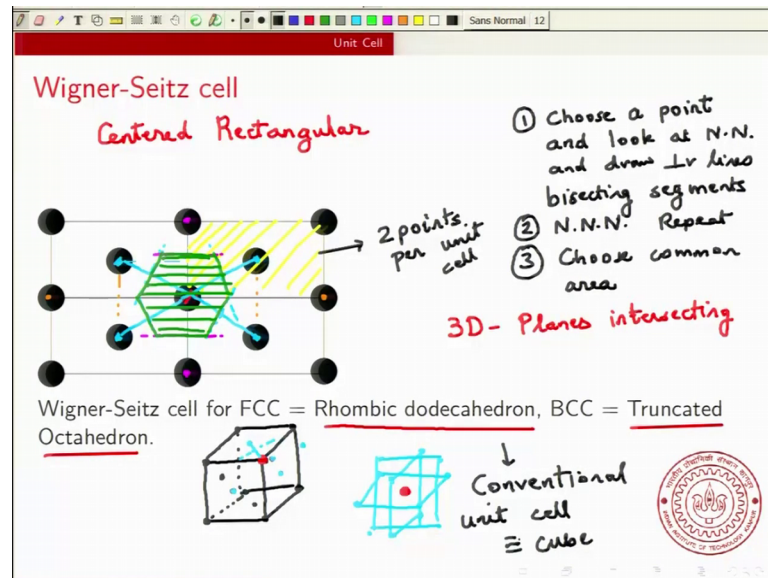 Sans Normal 12
Unit Cell
Wigner-Seitz cell
Centered Rectangular
① Choose a point
and look at N.N.
and draw ⊥r lines
bisecting segments
② N.N.N. Repeat
③ Choose common
area
2 points
per unit
cell
3D- Planes intersecting
Wigner-Seitz cell for FCC = Rhombic dodecahedron, BCC = Truncated
Octahedron.
Conventional
unit cell
≡ cube
INDIAN INSTITUTE OF TECHNOLOGY KANPUR